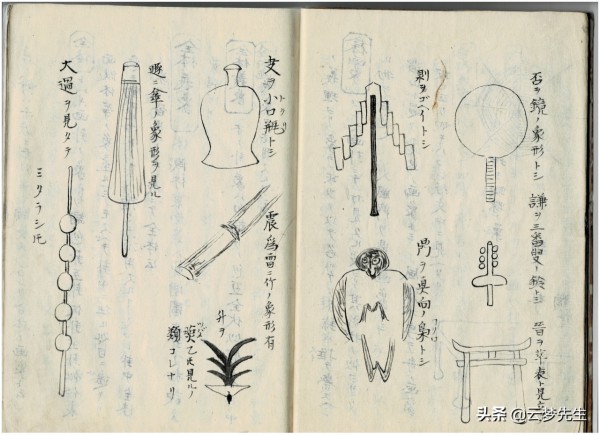 否ヲ鏡ノ象形トシ
謙ヲ三番叟ノ鈴トシ
晋ヲ華表ト見立
剥ヲゴヘイトシ
ヲ真向ノ梟トシ
夬ヲ小口瓶トシ
トクリ
震爲雷ニ竹ノ象形有
升ヲ
見ルノ
類コレナリ
遯ニ傘ノ象形ヲ見ル
大過ヲ見タテ
ミタラシ
头条 @云梦先生